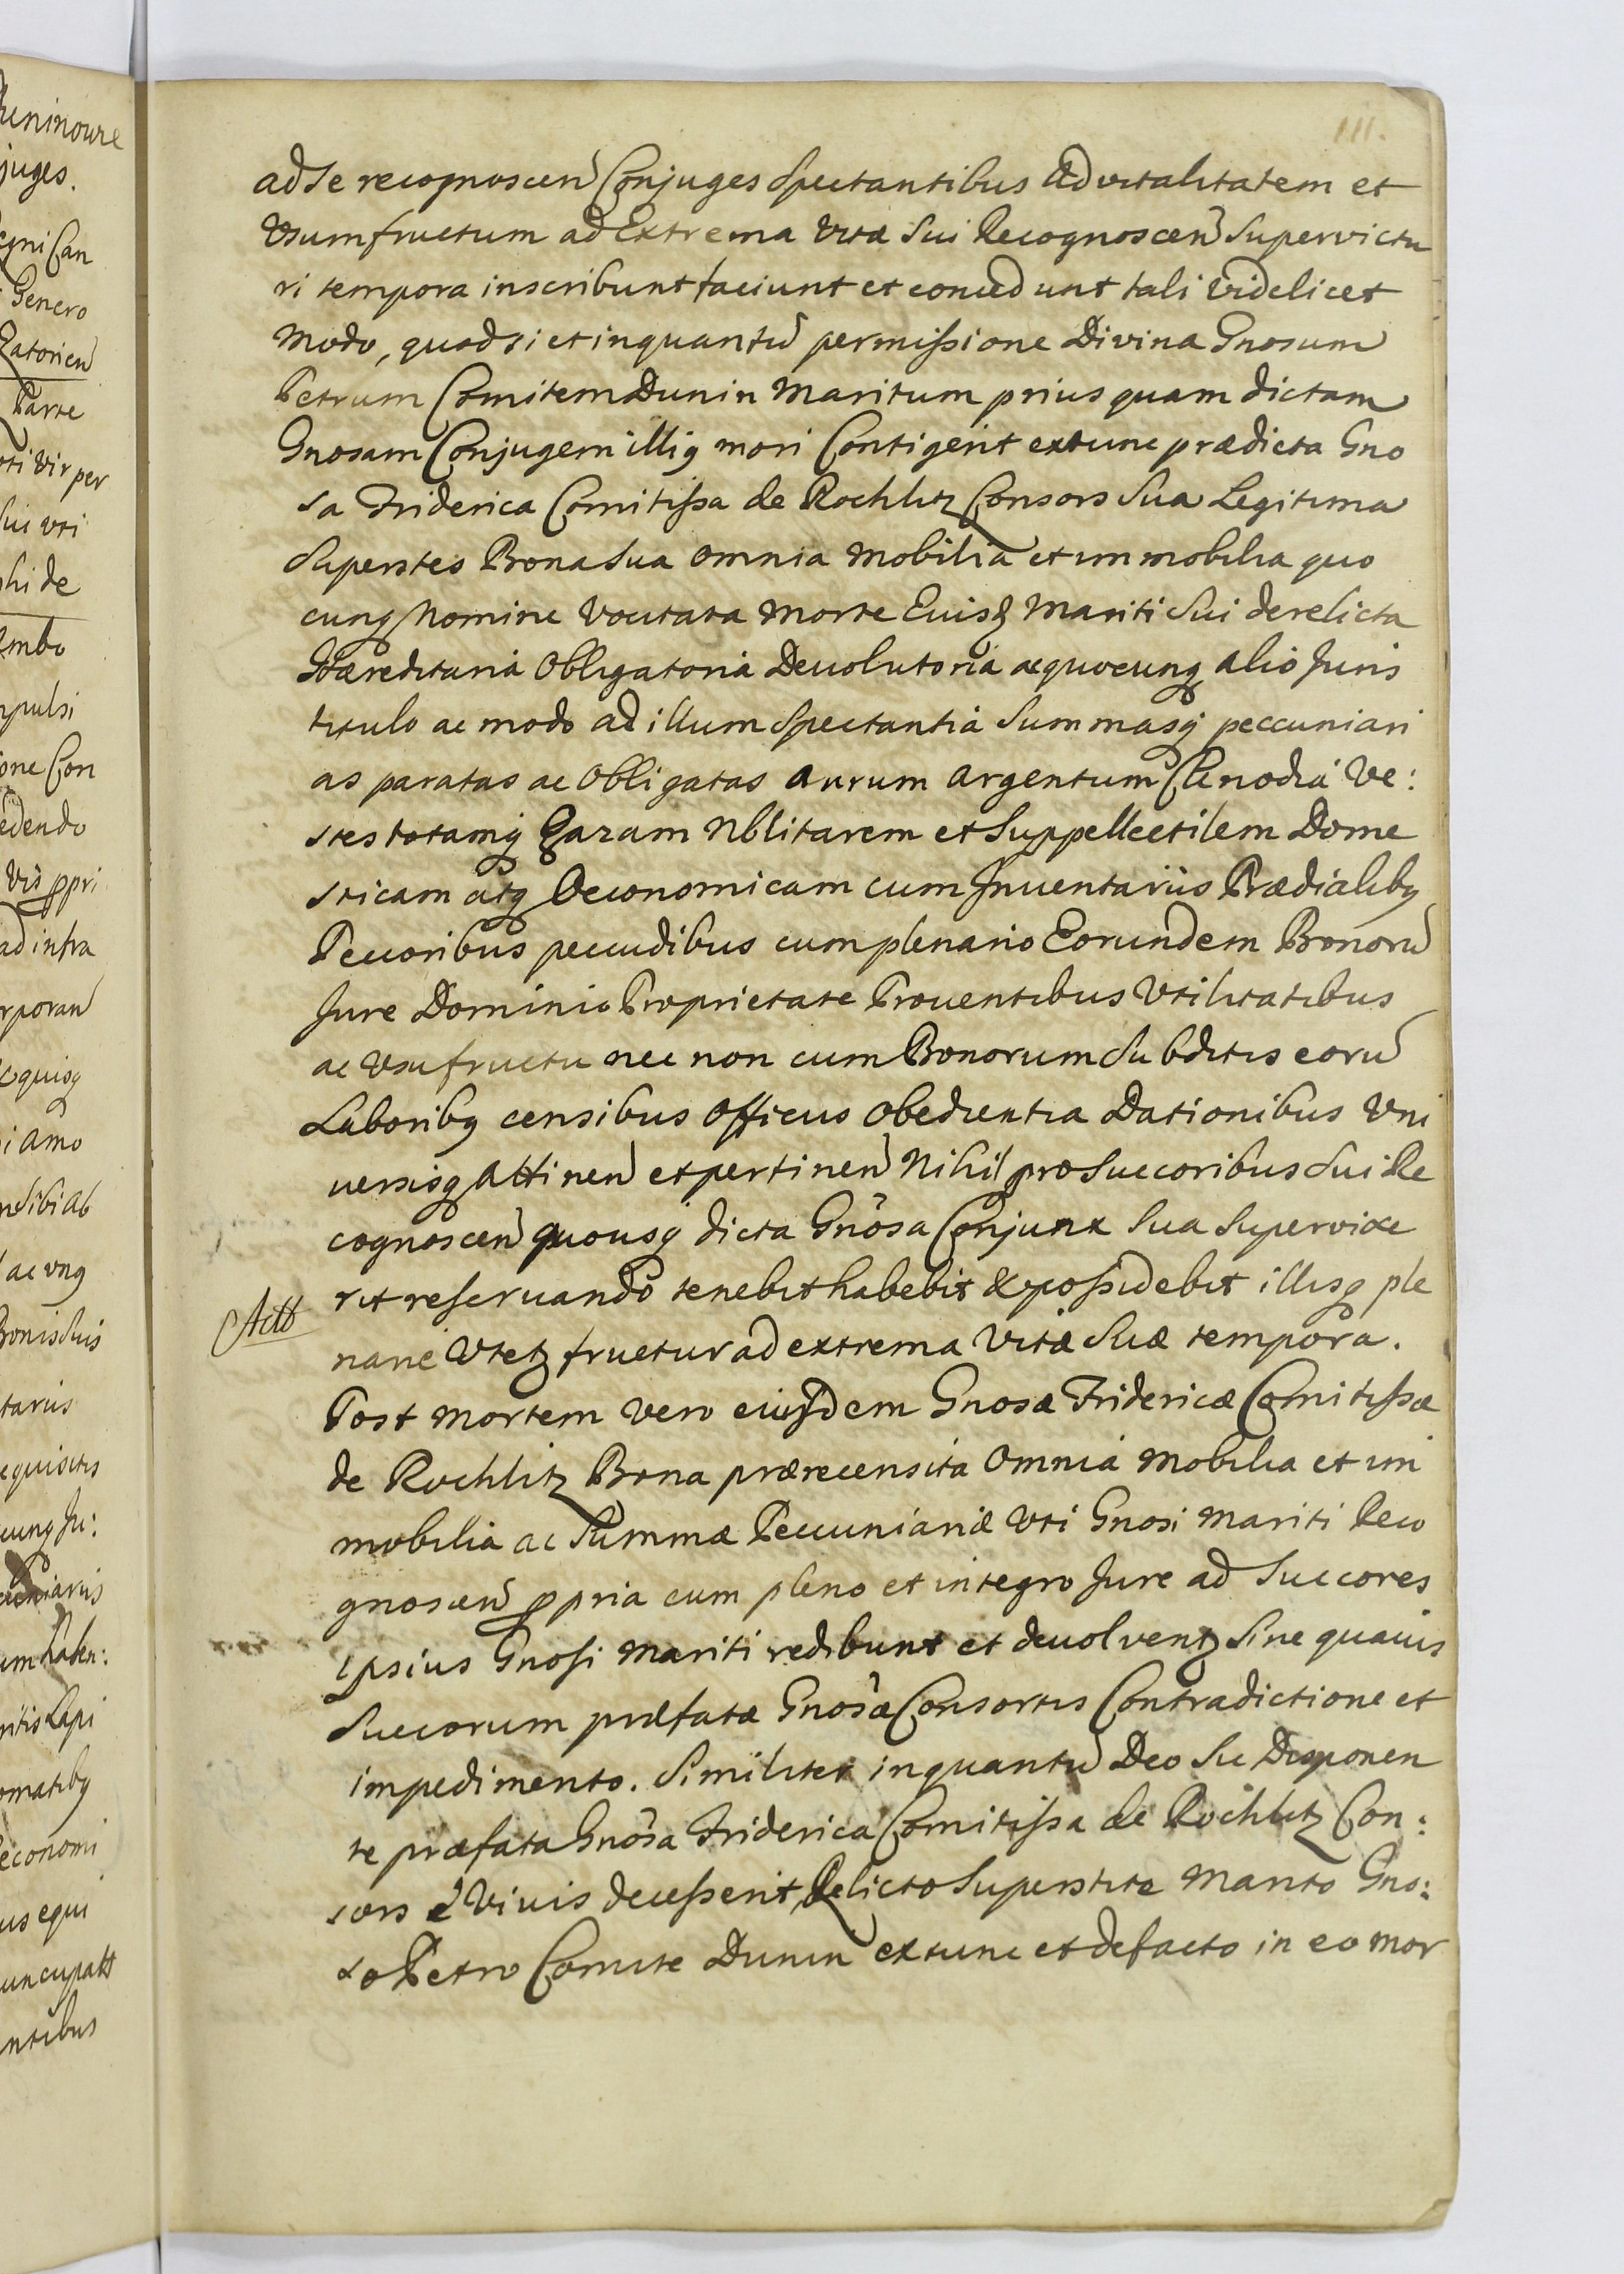 uninowe
juges.
gni Can
Genero
zatorien
Parte
oti Vir per
sui vti
hi de
Ambo
mpulsi
one Con
edendo
Vis ppri
ad infra
rporan
quisq
i amo
sibi ab
ac vnq
Bonis Suis
tarus
equisitis
cunq Ju:
uniarus
um haben:
ritis Lapi
omatibq
economi
us equi
uncupatt
ntibus
111.
ad Se recognoscen Conjuges Spectantibus Advitalitatem et
Vsumfructum ad Extrema Vitæ Sui Recognoscen Supervictu
ri tempora inscribunt faciunt et concedunt tali Videlicet
Modo, quod si et inquantu permissione Divina Gnosum
Petrum Comitem Dunin Maritum prius quam dictam
Gnosam Conjugem illiq mori Contigerit extunc prædicta Gno
sa Friderica Comitissa de Rochlitz Consors Sua Legitima
Superstes Bona Sua Omnia Mobilia et immobilia quo
cunq Nomine Vocitata Morte Euisq Mariti Sui derelicta
Hæreditaria Obligatoria Deuolutoria ac quocunq alio Juris
titulo ac modo ad illum Spectantia Summasq peccuniari
as paratas ac Obligatas Aurum Argentum Clenodia Ve:
stes totamq Gazam Nblitarem et Suppellectilem Dome
sticam atq Oeconomicam cum Jnuentariis Prædialibq
Pecoribus pecudibus cum plenario Eorundem Bonoru
Jure Dominio Proprietate Prouentibus Vtilitatibus
ac Vsufructu nec non cum Bonorum Subditis eoru
Laboribq censibus Officiis Obedientia Dationibus Vni
uersisq Attinen et pertinen Nihil pro Succoribus Sui Re
cognoscen quousq dicta Gnosa Conjunx Sua Supervixe
rit reseruando tenebit habebit & possidebit illisq ple
Actt
narie Vtetz fruetur ad extrema Vitæ Suæ tempora.
Post Mortem Vero eiusdem Gnosæ Fridericæ Comitissæ
de Rochlitz Bona prærecensita Omnia Mobilia et im
mobilia ac Summæ Peccuniariæ Vti Gnosi Mariti Reco
gnoscen ppria cum pleno et integro Jure ad Succores
ipsius Gnosi Mariti redibunt et deuolventz Sine quauis
Succorum præfatæ Gnosæ Consortis Contradictione et
impedimento. Similiter inquantu Deo Sic Disponen
te præfata Gnosa Friderica Comitissa de Rochlitz Con:
sors è Viuis decesserit, Relicto Superstite Marito Gno:
so Petro Comite Dunin extunc et de facto in eo mor